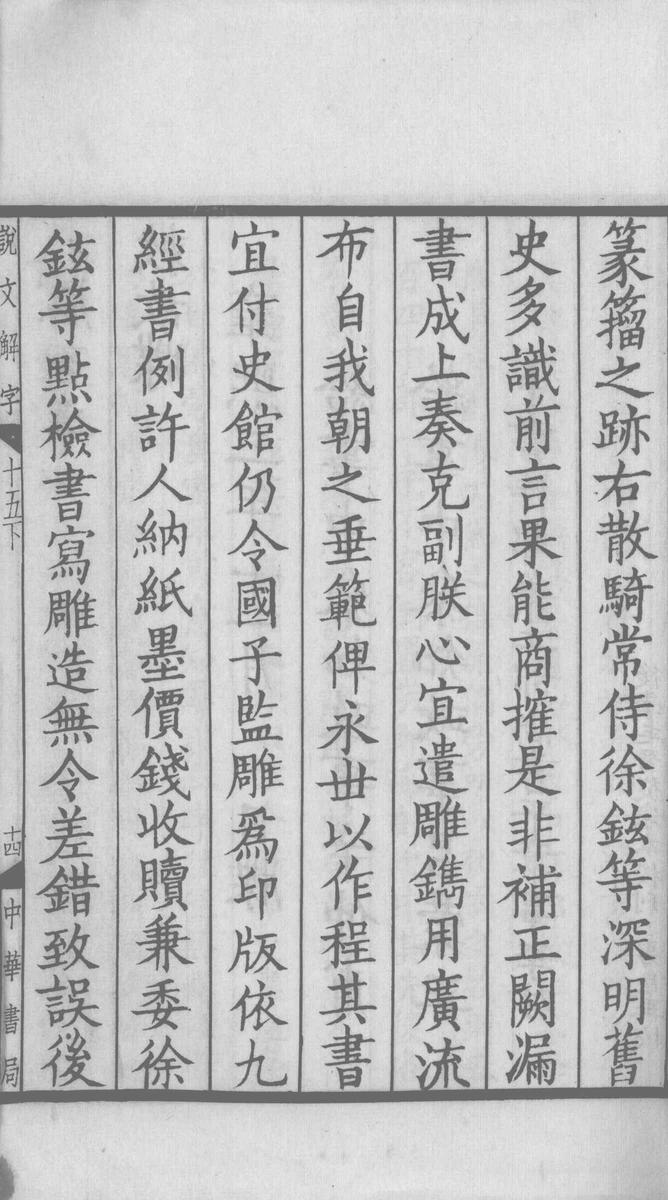 篆籀之跡右散騎常侍徐鉉等深明舊
史多識前言果能商搉是非補正闕漏
書成上奏克副朕心宜遣雕鐫用廣流
布自我朝之垂範俾永丗以作程其書
宜付史館仍令國子監雕爲印版依九
經書例許人納紙墨價錢收贖兼委徐
鉉等點檢書寫雕造無令差錯致誤後
說文解字 十五下 十四 中華書局